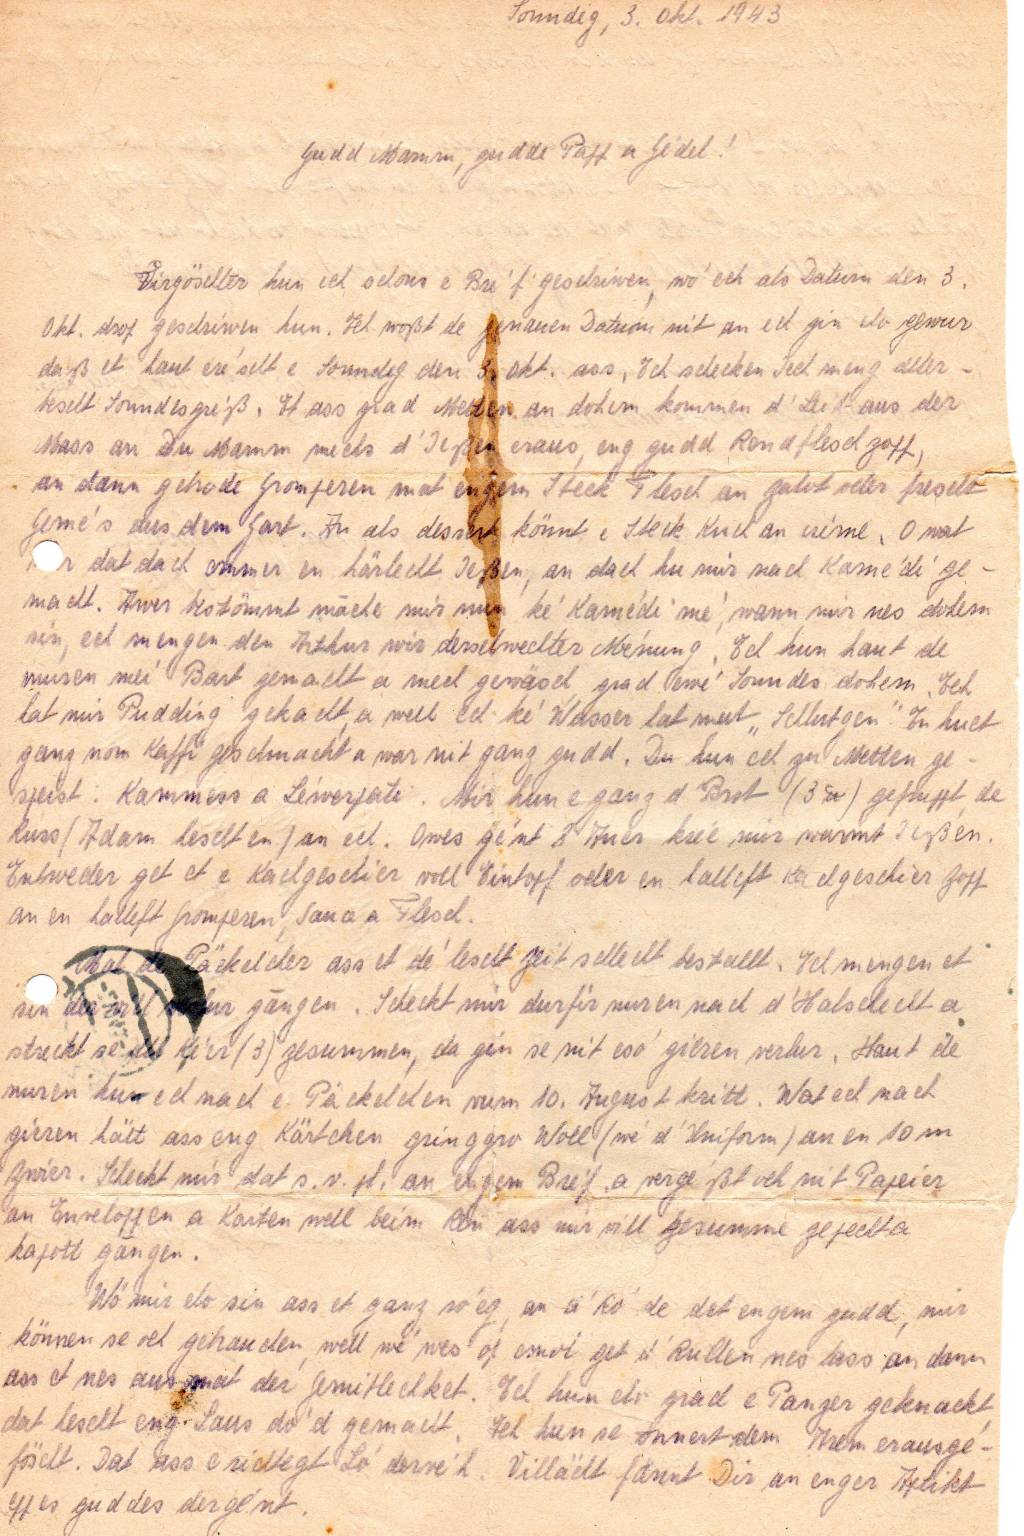 Sonndig, 3. Okt. 1943
Gudd Mamm, gudde Papp a Gédel!
Virgöschter hun ech schons e Bréf geschriwen, wó ech als Datum den 3.
Okt. drop geschriwen hun. Ech woßt de genauen Datum nit an ech gin elo gewuer
daß et haut eréscht e Sonndig den 3. Okt. ass. Ech schecken Iech meng aller-
bescht Sonndesgréß. Et ass grad Metten an dohem kommen d'Leit aus der
Mass an Du Mamm mechs d'Ießen eraus, eng gudd Rendfleschzopp,
an dann gebrode Gromperen mat engem Steck Flesch an zalot oder frescht
Gemés aus dem Gart. An als dessert könnt e Steck Kuch an créme. O wat
wor dat dach ömmer en härlecht Ießen, an dach hu mir nach Kamédi ge-
macht. Awer bestömmt māche mir nun ké Kamédi mé, wann mir nes dohem
sin, ech mengen den Arthur wir derselwechter Ménung. Ech hun haut de
muren méi Bart gemacht a mech gewäsch, grad ewé Sonndes dohem. Ech
hat mir Pudding gekacht, a well ech ké Wasser hat mat "Schlutgen". En huet
ganz nom Kaffi geschmacht a war nit ganz gudd. Du hun ech zu Metten ge-
speist. Kammess a Léwerpati. Mir hun e ganz d'Brot (3 &) gefruppt de
Kurs (Adam hescht en) an ech. Owes gént 8 Auer krée mir warmt Ießen.
Entweder get et e Kachgeschier voll Eintopf oder en halleft Kachgeschier Zopp
an en halleft Gromperen, Sauce a Flesch.
Mat de Päckelcher ass et dé lescht Zeit schlecht bestallt. Ech mengen et
sin der vill verlur gāngen. Scheckt mir durfir nuren nach d'Halschecht a
streckt se all Kéer (3) zesummen, da gin se nit esó gieren verlur. Haut de
muren hun ech nach e Päckelchen vum 10. August kritt. Wat ech nach
gieren hätt ass eng Kärtchen gringgro Woll (wé d'Uniform) an en 10 m
Zwier. Scheckt mir dat s.v.pl. an engem Bréf. a vergéßt och nit Papeier
an Enveloppen a Karten well beim Ren ass mir vill zesumme gepecht a
kapott gāngen.
Wó mir elo sin ass et ganz róeg, an d'Ró de det engem gudd, mir
können se och gebrauchen, well wé wes op emol get d'Rullen nes lass an dann
ass et nes aus mat der Gemitlechket. Ech hun elo grad e Panzer geknackt
dat hescht eng Laus dód gemacht. Ech hun se önnert dem Arem erausgé-
föscht. Dat ass e richtegt Ló dervéh. Villäicht fannt Dir an enger Aptikt
eppes guddes dergént.